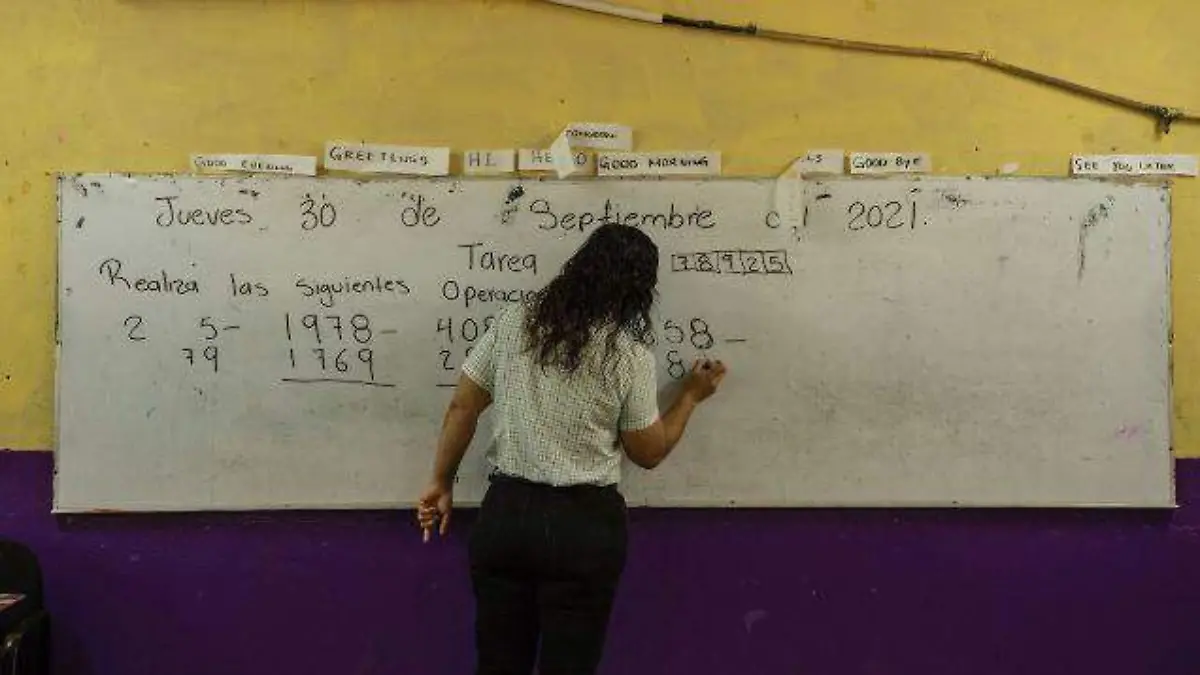 GOOD EVENING GREETINGS HI HE O GOOD MORNING GOOD BYE SEE YOU LATER
Jueves 30 de Septiembre 2021.
Tarea 78925
Realiza las siguientes Operacio
2 5- 1978- 408 58-
79 1769 2 8